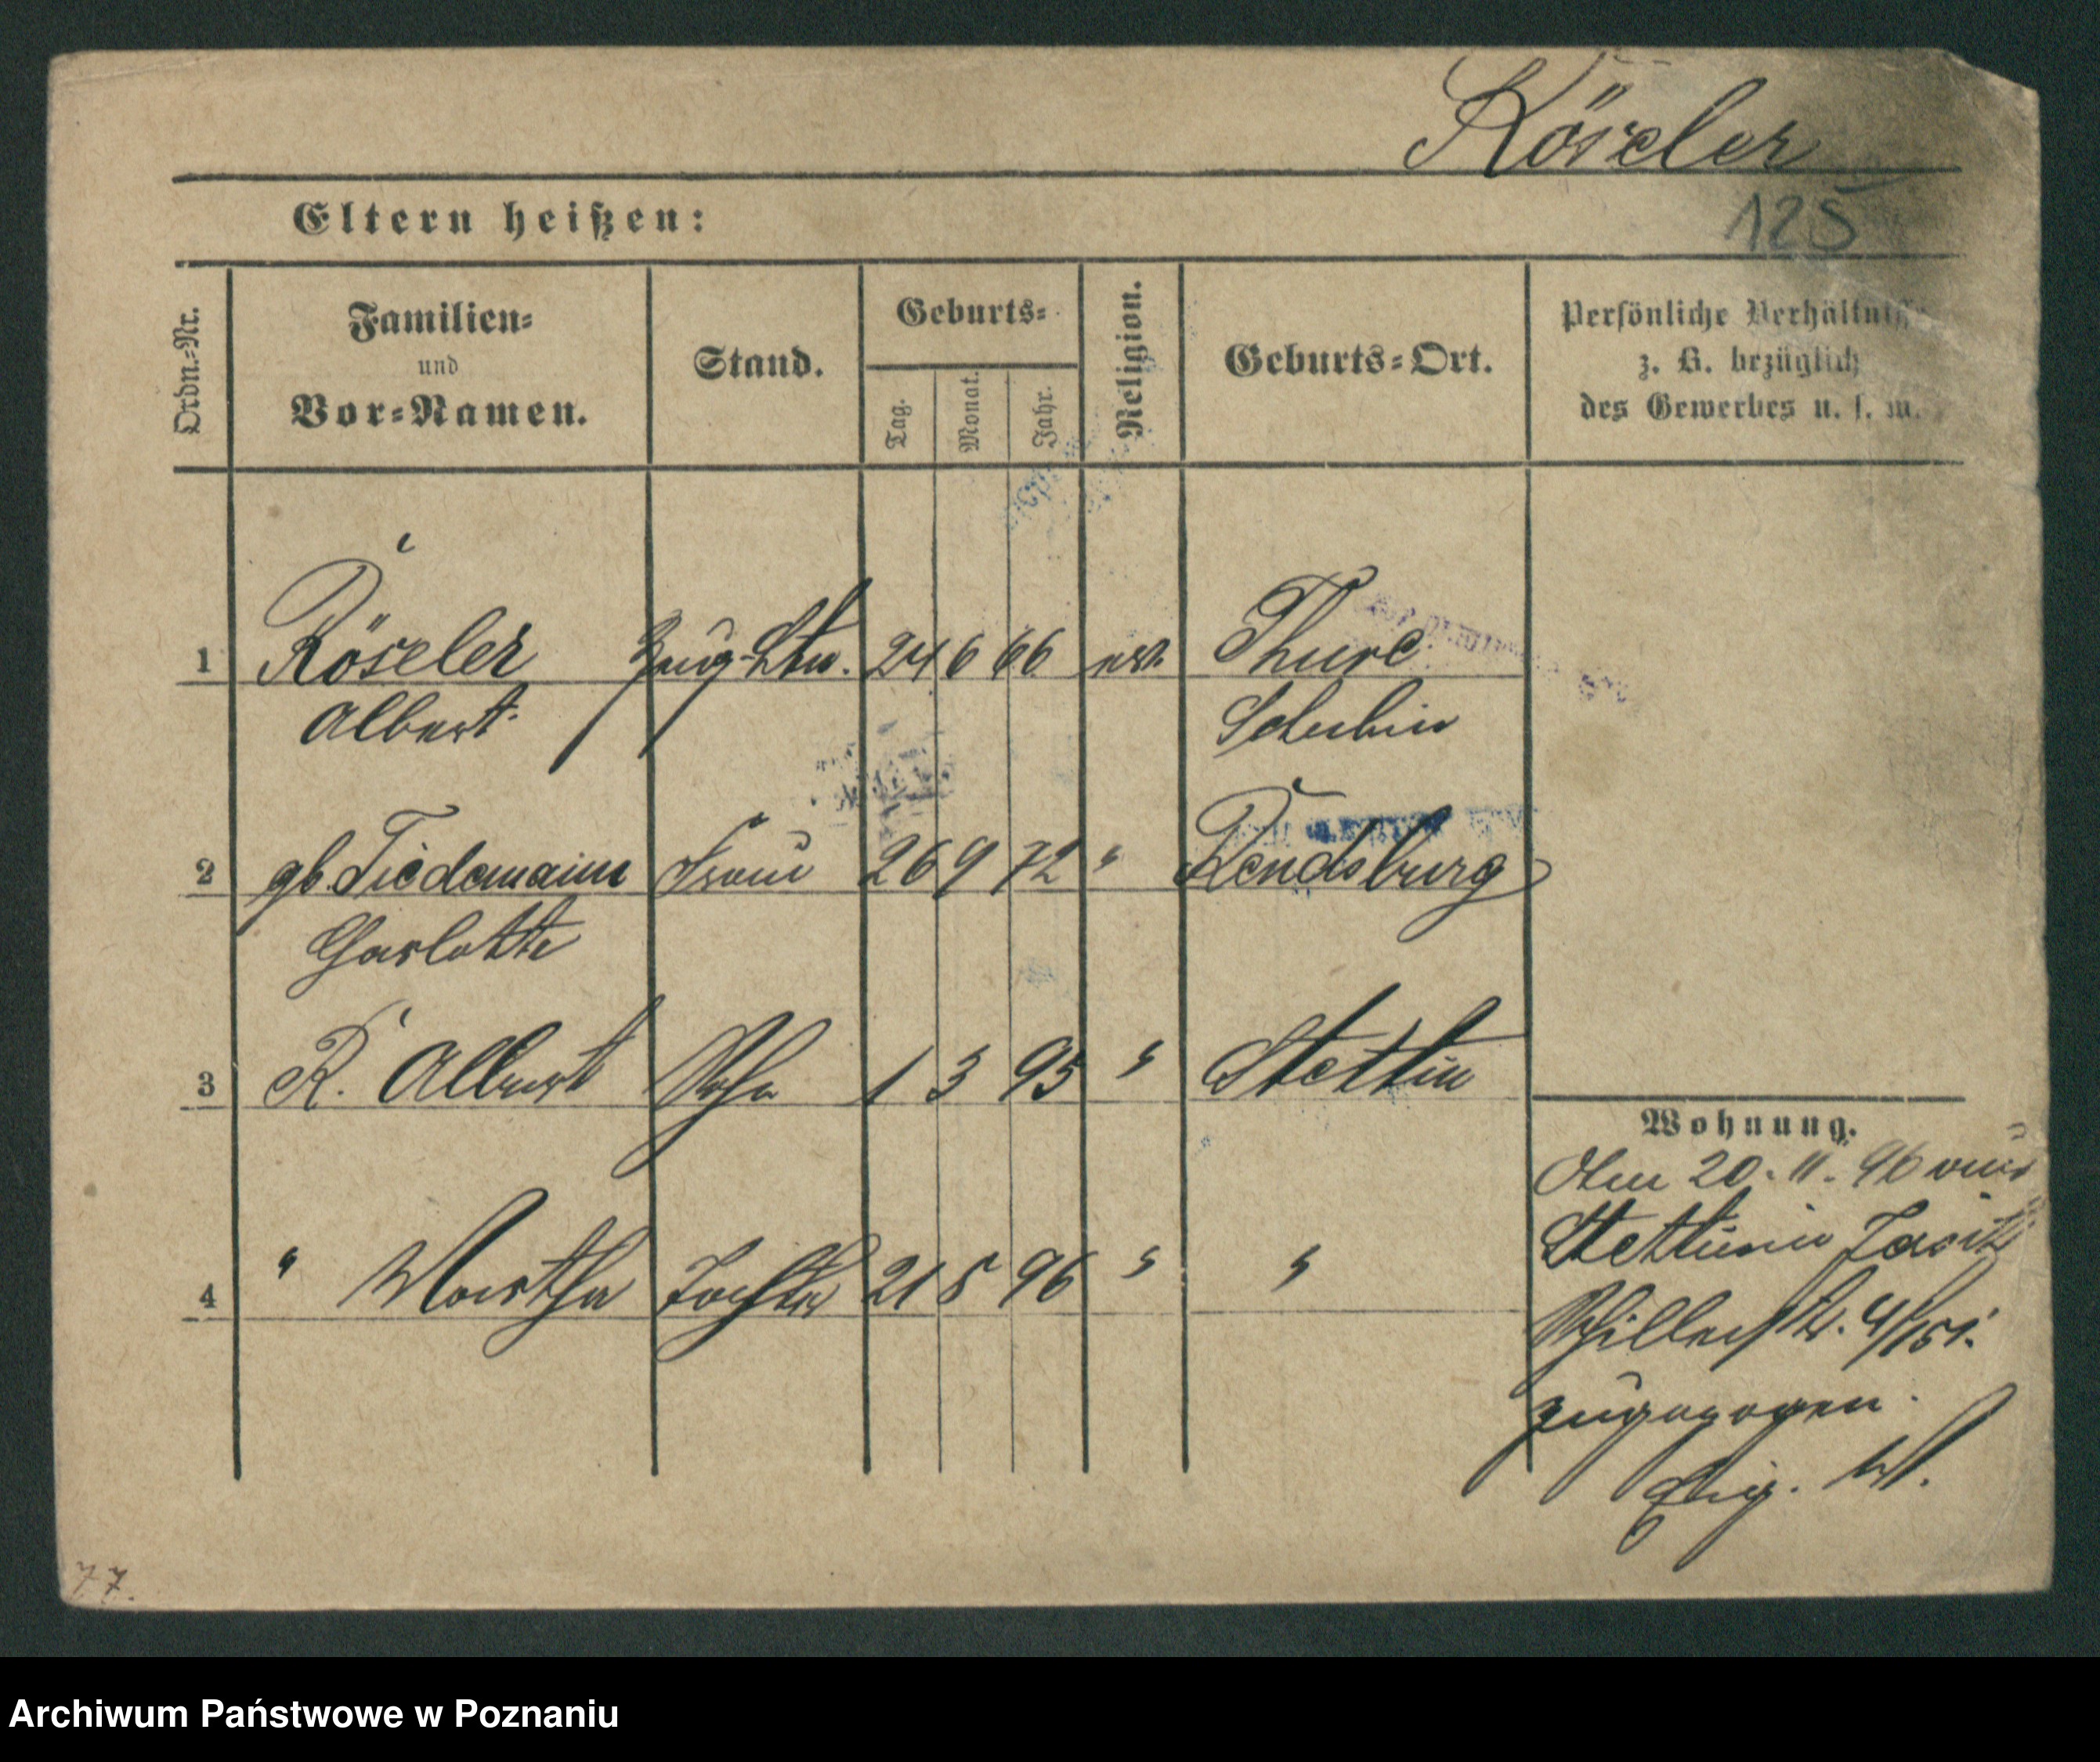 Röseler
Eltern heißen:
125
Ordn.-Nr.
Familien-
und
Vor-Namen.
Stand.
Geburts-
Tag.
Monat.
Jahr.
Religion.
Geburts-Ort.
Persönliche Verhältnisse
z. B. bezüglich
des Gewerbes u. s. w.
1 Röseler Zeug-Ltn. 24 6 66 ev. Thure
Albert Schubin
2 gb. Tiedemann Frau 26 9 72 " Rendsburg
Charlotte
3 R. Albert Sohn 1 3 95 " Stettin
4 " Martha Tochter 21 5 96 " "
Wohnung.
Am 20. 11. 96 aus
Stettin
Schillerstr. 4/15
zugezogen.
77.
Archiwum Państwowe w Poznaniu